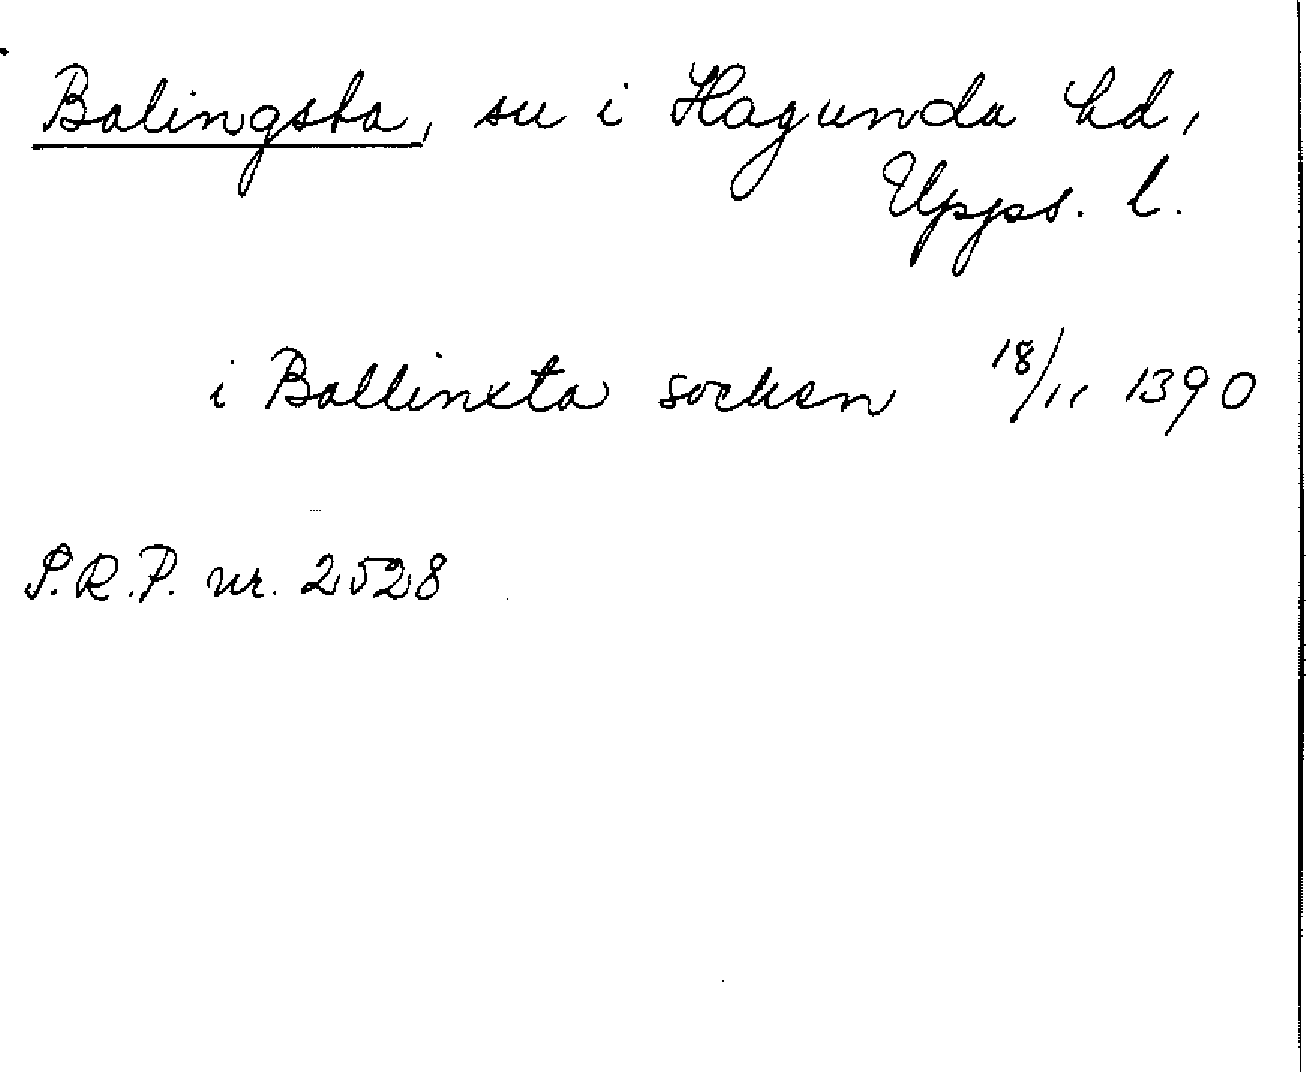 Balingsta, sn i Hagunda hd,
Upps. l.
i Ballinxta socken 18/11 1390
S.R.P. nr. 2528